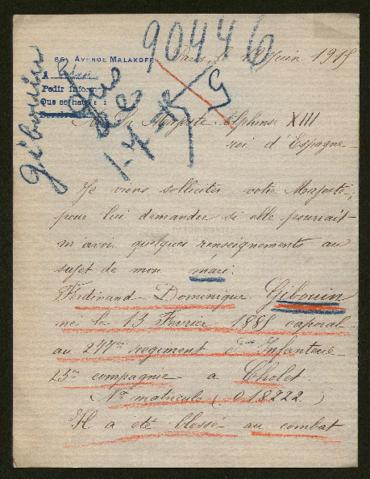 90446
Gibouin
86, AVENUE MALAKOFF
Juin 1915
Pedir
Que se
Majesté Alphonse XIII
roi d'Espagne
Je viens solliciter votre Majesté,
pour lui demander si elle pourrait
m'avoir quelques renseignements au
sujet de mon mari:
Ferdinand Dominique Gibouin
né le 13 Février 1881 caporal
au 277me regiment d'Infanterie
25me compagnie a Cholet
(No matricule (018222)
Il a été blessé au combat